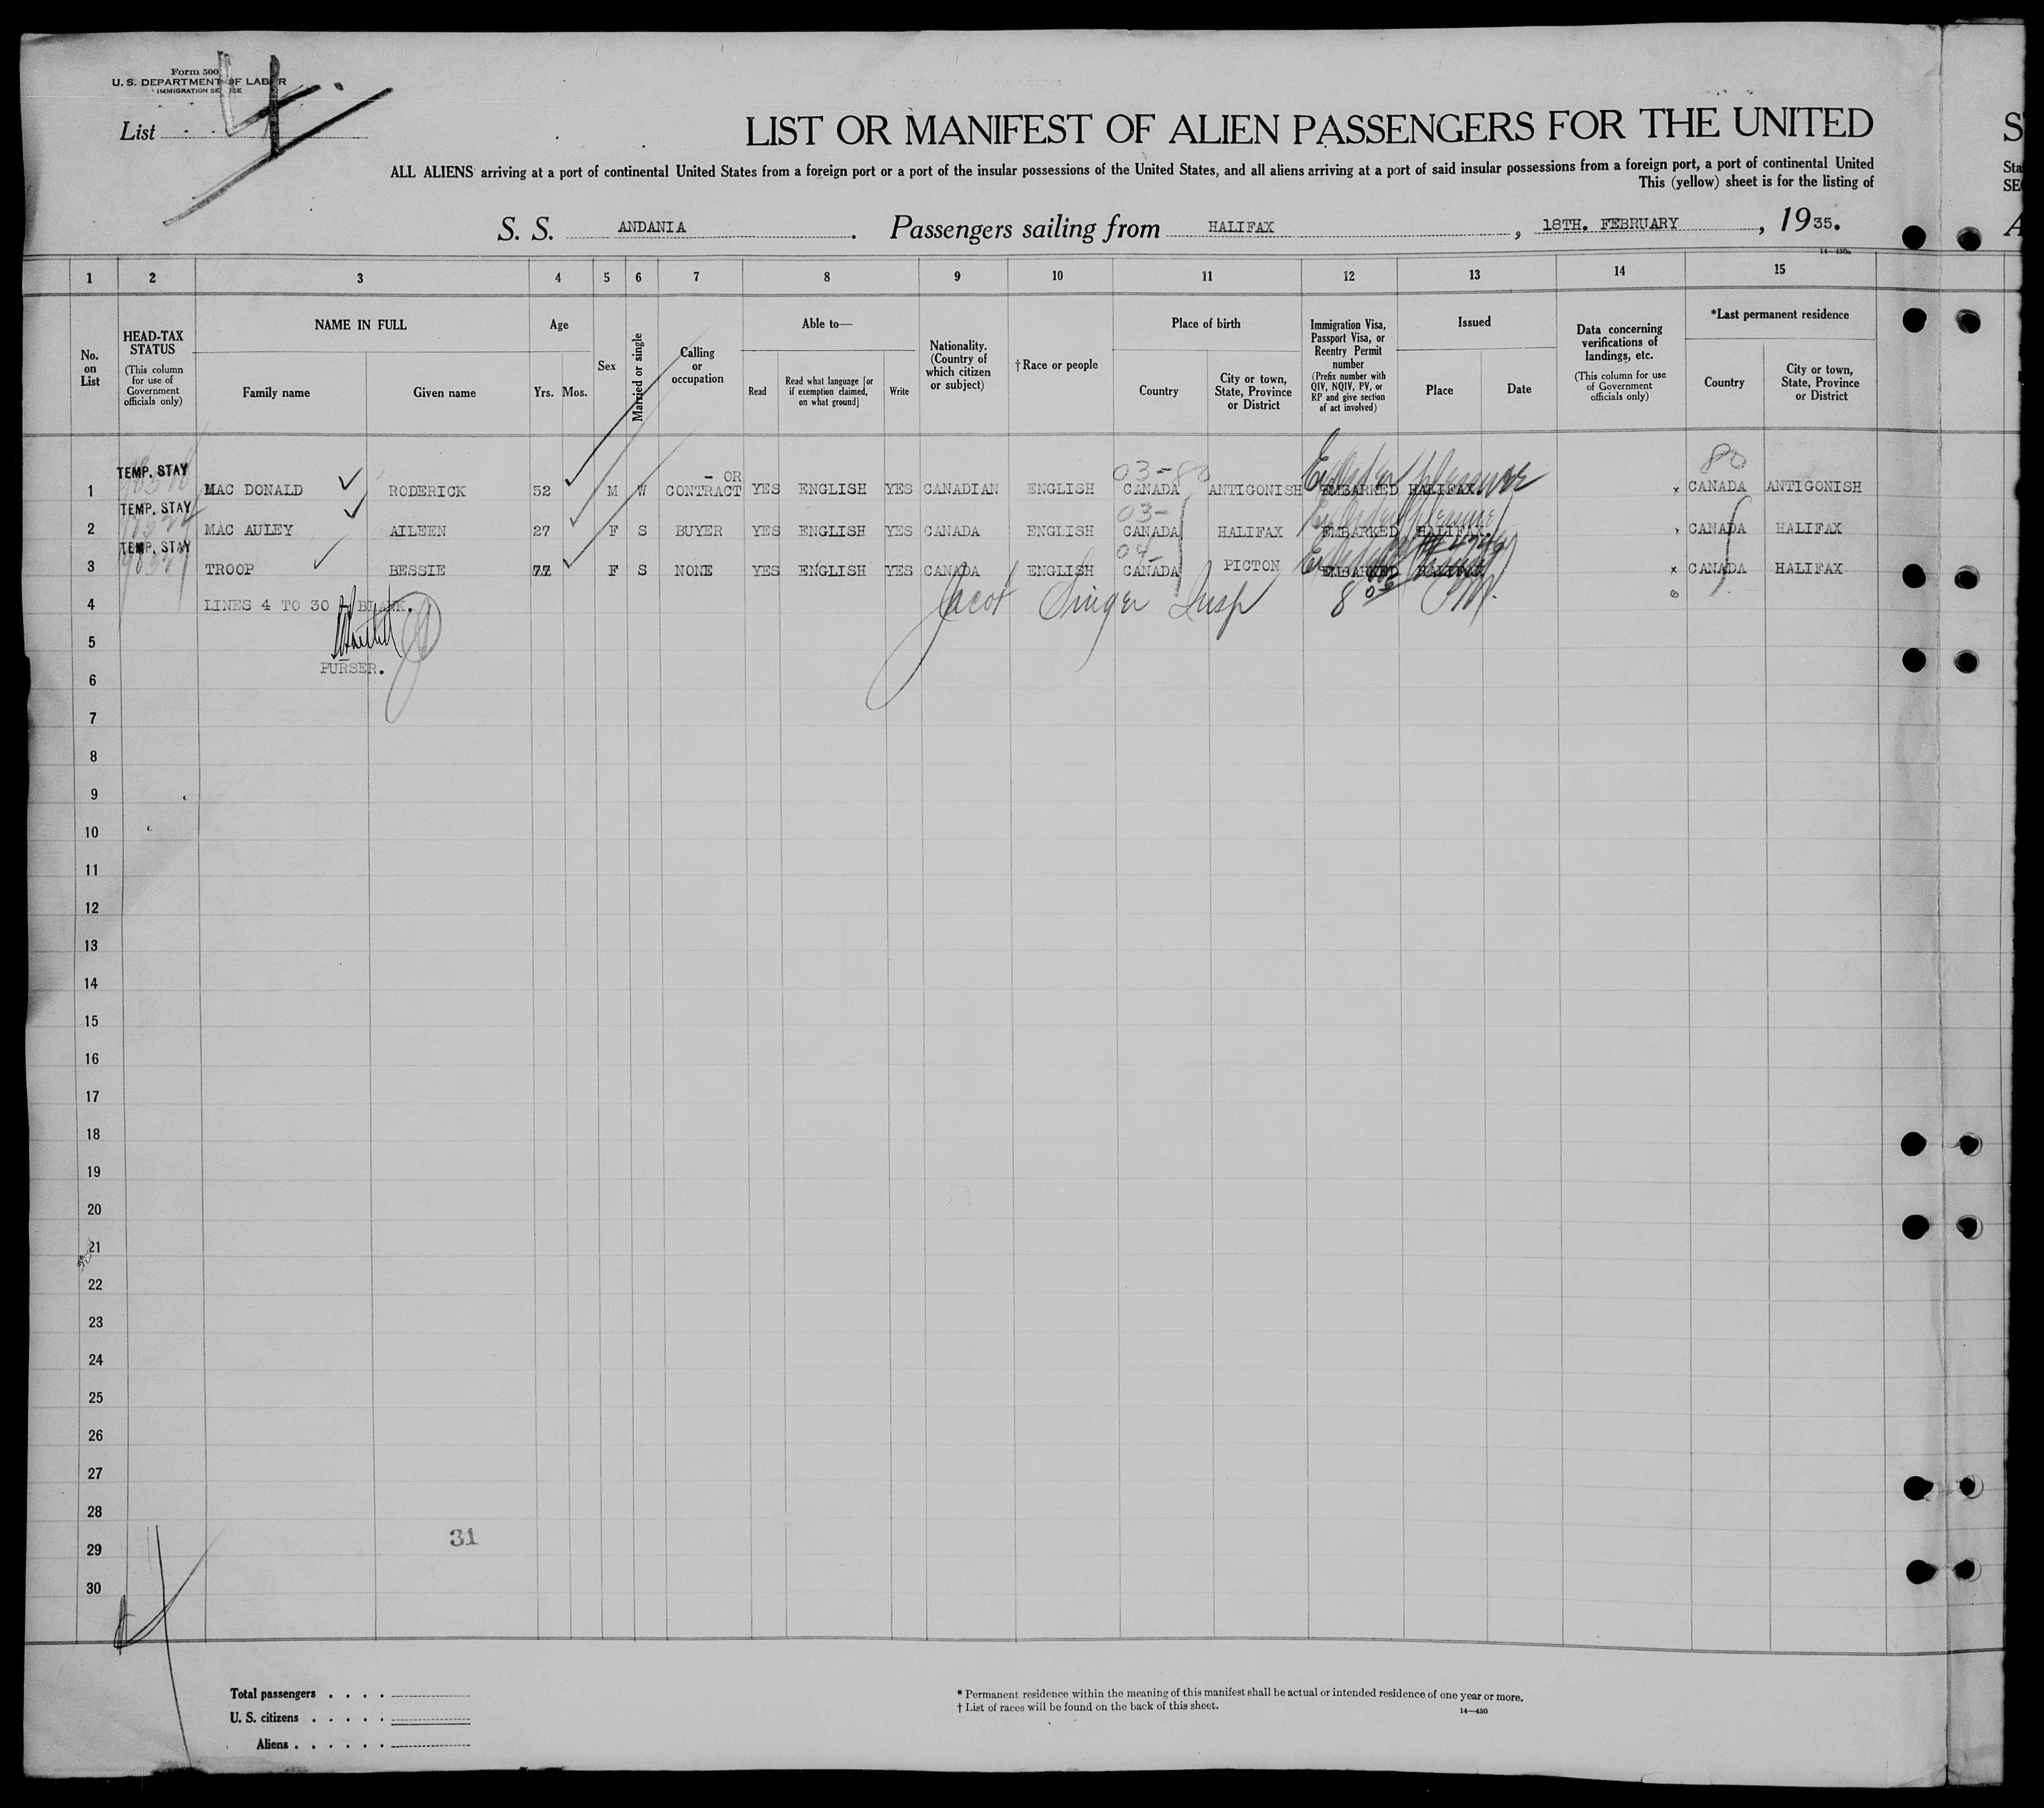 Form 500
U. S. DEPARTMENT OF LABOR
IMMIGRATION SERVICE
List 4
LIST OR MANIFEST OF ALIEN PASSENGERS FOR THE UNITED
ALL ALIENS arriving at a port of continental United States from a foreign port or a port of the insular possessions of the United States, and all aliens arriving at a port of said insular possessions from a foreign port, a port of continental United
This (yellow) sheet is for the listing of
S. S. ANDANIA. Passengers sailing from HALIFAX, 18TH. FEBRUARY, 1935.
14—430a
1 2 3 4 5 6 7 8 9 10 11 12 13 14 15
No. on List
HEAD-TAX STATUS (This column for use of Government officials only)
NAME IN FULL
Family name Given name
Age
Yrs. Mos.
Sex
Married or single
Calling or occupation
Able to—
Read Read what language [or if exemption claimed, on what ground] Write
Nationality. (Country of which citizen or subject)
†Race or people
Place of birth
Country City or town, State, Province or District
Immigration Visa, Passport Visa, or Reentry Permit number (Prefix number with QIV, NQIV, PV, or RP and give section of act involved)
Issued
Place Date
Data concerning verifications of landings, etc. (This column for use of Government officials only)
*Last permanent residence
Country City or town, State, Province or District
03-80 80
TEMP. STAY - OR
1 MAC DONALD RODERICK 52 M W CONTRACT YES ENGLISH YES CANADIAN ENGLISH CANADA ANTIGONISH EMBARKED HALIFAX. x CANADA ANTIGONISH
TEMP. STAY 03-
2 MAC AULEY AILEEN 27 F S BUYER YES ENGLISH YES CANADA ENGLISH CANADA HALIFAX EMBARKED HALIFAX x CANADA HALIFAX
TEMP. STAY 04-
3 TROOP BESSIE 77 F S NONE YES ENGLISH YES CANADA ENGLISH CANADA PICTON EMBARKED HALIFAX x CANADA HALIFAX
4 LINES 4 TO 30 BLANK. Jacob Singer Insp
5
PURSER.
6
7
8
9
10
11
12
13
14
15
16
17
18
19
20
21
22
23
24
25
26
27
28
31
29
30
Total passengers . . . .
U. S. citizens . . . . .
Aliens . . . . . .
* Permanent residence within the meaning of this manifest shall be actual or intended residence of one year or more.
† List of races will be found on the back of this sheet.
14—430
S
Sta
SE
A